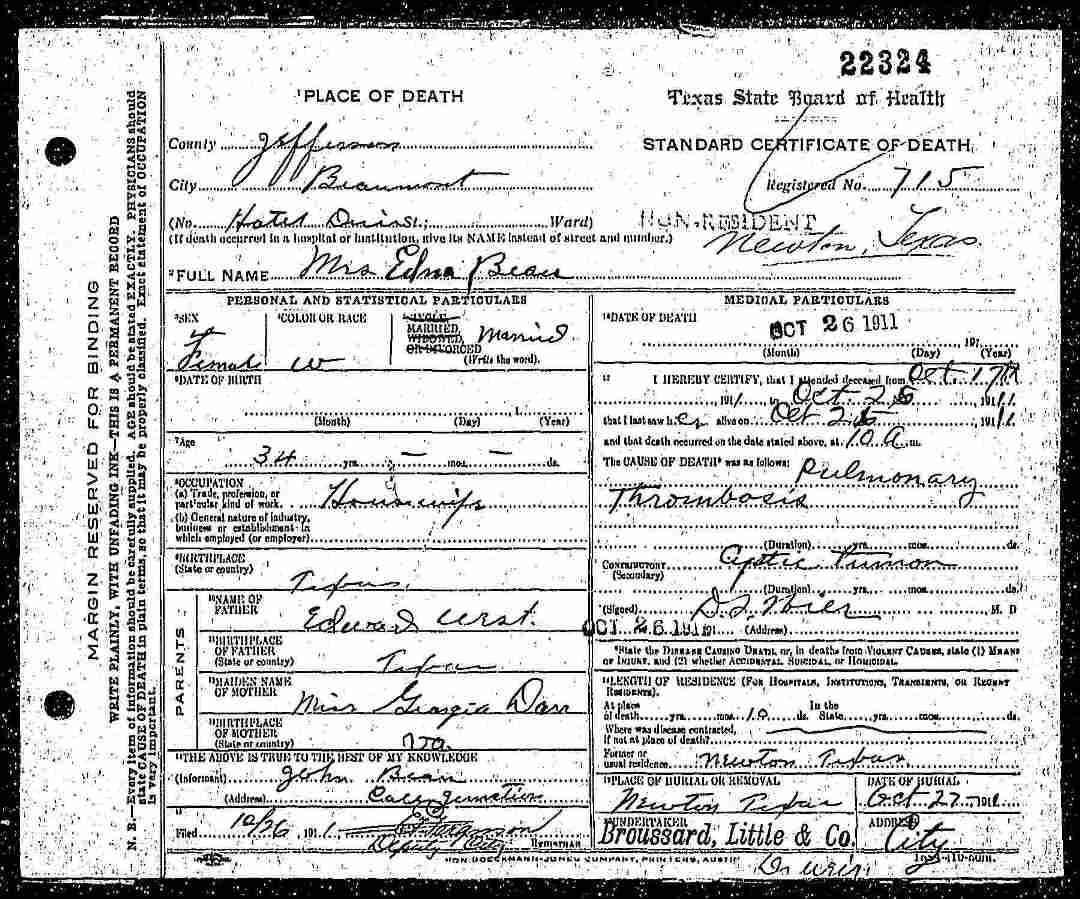 22324
PLACE OF DEATH
Texas State Board of Health
County Jefferson
STANDARD CERTIFICATE OF DEATH
City Beaumont
Registered No. 715
(No. Hotel St.; Ward)
NON-RESIDENT
(If death occurred in a hospital or institution, give its NAME instead of street and number.)
Newton, Texas.
FULL NAME Mrs Edna Bean
PERSONAL AND STATISTICAL PARTICULARS
SEX
Female
COLOR OR RACE
W
SINGLE,
MARRIED,
WIDOWED,
OR DIVORCED
Married
(Write the word).
DATE OF BIRTH
1
(Month) (Day) (Year)
Age
34 yrs. — mos. — ds.
OCCUPATION
(a) Trade, profession, or
particular kind of work. Housewife
(b) General nature of industry,
business or establishment in
which employed (or employer)
BIRTHPLACE
(State or country)
Texas
PARENTS
NAME OF
FATHER
Edward West.
BIRTHPLACE
OF FATHER
(State or country)
Texas
MAIDEN NAME
OF MOTHER
Miss Georgia Darr
BIRTHPLACE
OF MOTHER
(State or country)
Va.
THE ABOVE IS TRUE TO THE BEST OF MY KNOWLEDGE
(Informant) John Bean
(Address) Call Junction
Filed 10/26 1911
Deputy City REGISTRAR
MEDICAL PARTICULARS
DATE OF DEATH
OCT 26 1911
191
(Month) (Day) (Year)
I HEREBY CERTIFY, that I attended deceased from Oct. 17th
1911 to Oct 25, 1911
that I last saw her alive on Oct 25 1911
and that death occurred on the date stated above, at 10 a m.
The CAUSE OF DEATH was as follows: Pulmonary
Thrombosis
(Duration) yrs. mos. ds.
CONTRIBUTORY
(Secondary)
Tumor
(Duration) yrs. mos. ds.
(Signed) M. D
OCT 26 1911 191 (Address)
State the DISEASE CAUSING DEATH, or, in deaths from VIOLENT CAUSES, state (1) MEANS
OF INJURY, and (2) whether ACCIDENTAL SUICIDAL or HOMICIDAL.
LENGTH OF RESIDENCE (FOR HOSPITALS, INSTITUTIONS, TRANSIENTS, OR RECENT
RESIDENTS).
At place
of death yrs. mos. 10 ds.
In the
State yrs. mos. ds.
Where was disease contracted,
if not at place of death?
Former or
usual residence. Newton Texas
PLACE OF BURIAL OR REMOVAL
Newton Texas
DATE OF BURIAL
Oct 27 1911
UNDERTAKER
Broussard, Little & Co.
ADDRESS
City
VON BOECKMANN-JONES COMPANY, PRINTERS, AUSTIN
Dr Weir.
MARGIN RESERVED FOR BINDING
WRITE PLAINLY, WITH UNFADING INK—THIS IS A PERMANENT RECORD
N. B.—Every item of information should be carefully supplied. AGE should be stated EXACTLY. PHYSICIANS should
state CAUSE OF DEATH in plain terms, so that it may be properly classified. Exact statement of OCCUPATION
is very important.